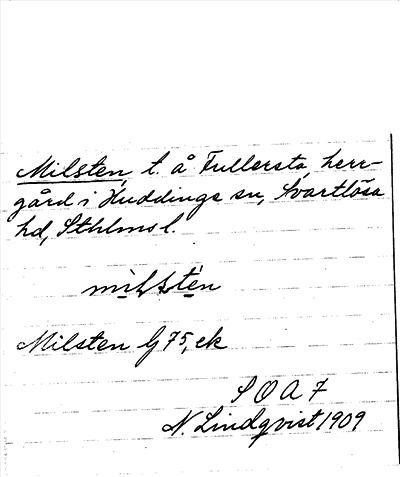 Milsten, t. å Fullersta, herr-
gård i Huddinge sn, Svartlösa
hd, Sthlms l.
mìlstén
Milsten G 75, ek
S O A 7
N. Lindqvist 1909